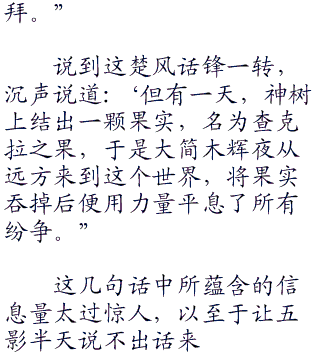 拜。”
说到这楚风话锋一转，
沉声说道：‘但有一天，神树
上结出一颗果实，名为查克
拉之果，于是大简木辉夜从
远方来到这个世界，将果实
吞掉后便用力量平息了所有
纷争。”
这几句话中所蕴含的信
息量太过惊人，以至于让五
影半天说不出话来